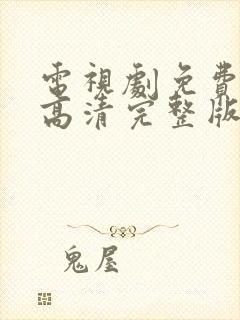 電視劇免費
高清完整版
鬼屋